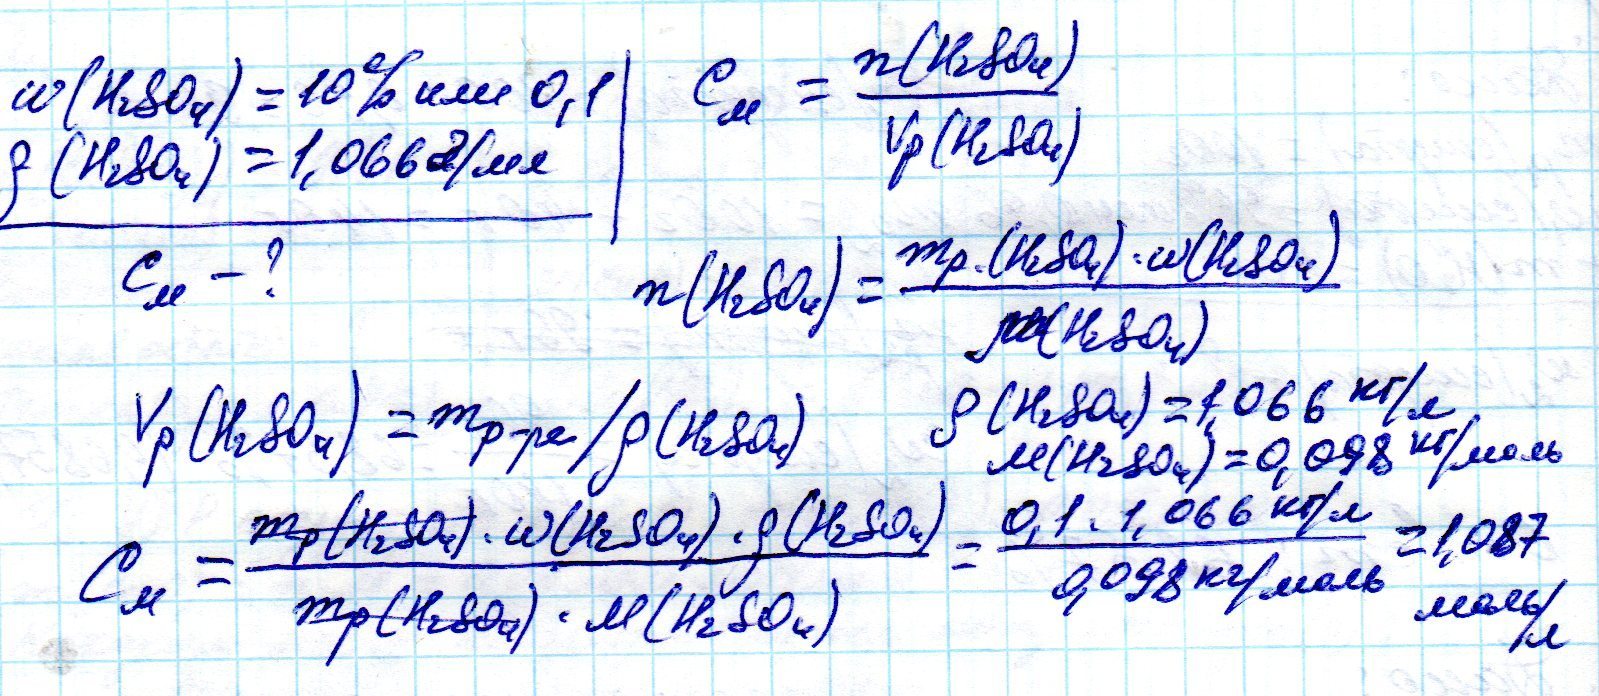 w(H₂SO₄) = 10% или 0,1
ρ(H₂SO₄) = 1,066 г/мл
Cм - ?
Cм = n(H₂SO₄) / Vр(H₂SO₄)
n(H₂SO₄) = mр.(H₂SO₄)·w(H₂SO₄) / M(H₂SO₄)
Vр(H₂SO₄) = mр-ра/ρ(H₂SO₄)
ρ(H₂SO₄) = 1,066 кг/л
M(H₂SO₄) = 0,098 кг/моль
Cм = mр(H₂SO₄)·w(H₂SO₄)·ρ(H₂SO₄) / mр(H₂SO₄)·M(H₂SO₄) = 0,1·1,066 кг/л / 0,098 кг/моль = 1,087 моль/л